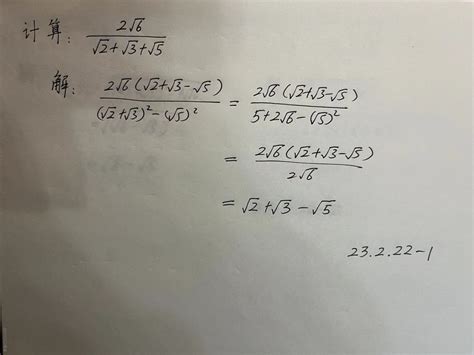 计算: 2√6 / (√2+√3+√5)
解: 2√6(√2+√3-√5) / ((√2+√3)²-(√5)²) = 2√6(√2+√3-√5) / (5+2√6-(√5)²)
= 2√6(√2+√3-√5) / 2√6
= √2+√3-√5
23.2.22-1